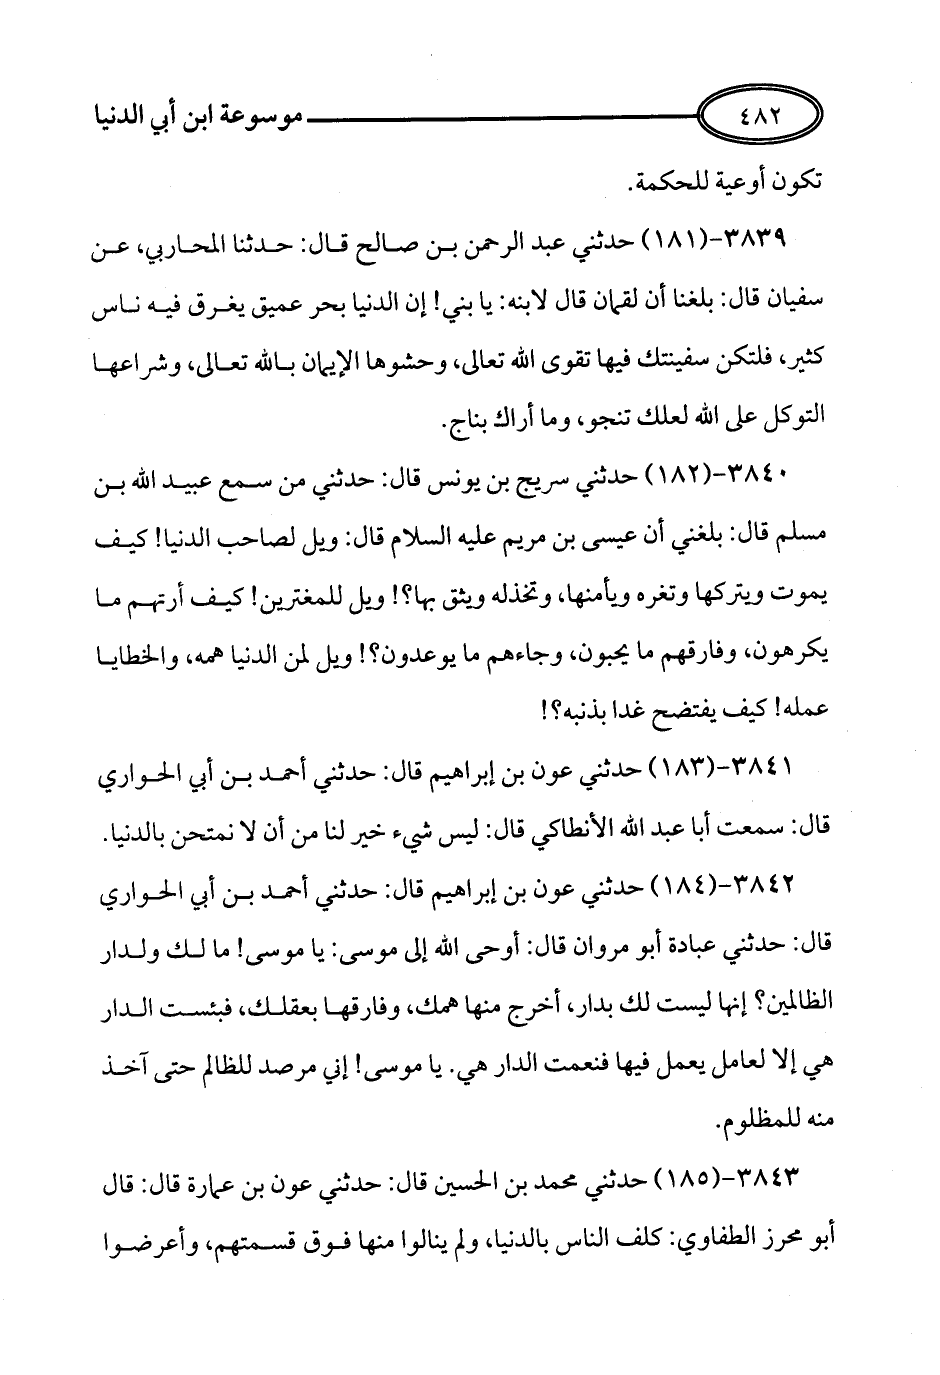 ٤٨٢ موسوعة ابن أبي الدنيا
تكون أوعية للحكمة.
٣٨٣٩-(١٨١) حدثني عبد الرحمن بن صالح قال: حدثنا المحاربي، عن
سفيان قال: بلغنا أن لقمان قال لابنه: يا بني! إن الدنيا بحر عميق يغرق فيه ناس
كثير، فلتكن سفينتك فيها تقوى الله تعالى، وحشوها الإيمان بالله تعالى، وشراعها
التوكل على الله لعلك تنجو، وما أراك بناج.
٣٨٤٠-(١٨٢) حدثني سريج بن يونس قال: حدثني من سمع عبيد الله بن
مسلم قال: بلغني أن عيسى بن مريم عليه السلام قال: ويل لصاحب الدنيا! كيف
يموت ويتركها وتغره ويأمنها، وتخذله ويثق بها؟! ويل للمغترين! كيف أرتهم ما
يكرهون، وفارقهم ما يحبون، وجاءهم ما يوعدون؟! ويل لمن الدنيا همه، والخطايا
عمله! كيف يفتضح غدا بذنبه؟!
٣٨٤١-(١٨٣) حدثني عون بن إبراهيم قال: حدثني أحمد بن أبي الحواري
قال: سمعت أبا عبد الله الأنطاكي قال: ليس شيء خير لنا من أن لا نمتحن بالدنيا.
٣٨٤٢-(١٨٤) حدثني عون بن إبراهيم قال: حدثني أحمد بن أبي الحواري
قال: حدثني عبادة أبو مروان قال: أوحى الله إلى موسى: يا موسى! ما لك ولدار
الظالمين؟ إنها ليست لك بدار، أخرج منها همك، وفارقها بعقلك، فبئست الدار
هي إلا لعامل يعمل فيها فنعمت الدار هي. يا موسى! إني مرصد للظالم حتى آخذ
منه للمظلوم.
٣٨٤٣-(١٨٥) حدثني محمد بن الحسين قال: حدثني عون بن عمارة قال: قال
أبو محرز الطفاوي: كلف الناس بالدنيا، ولم ينالوا منها فوق قسمتهم، وأعرضوا